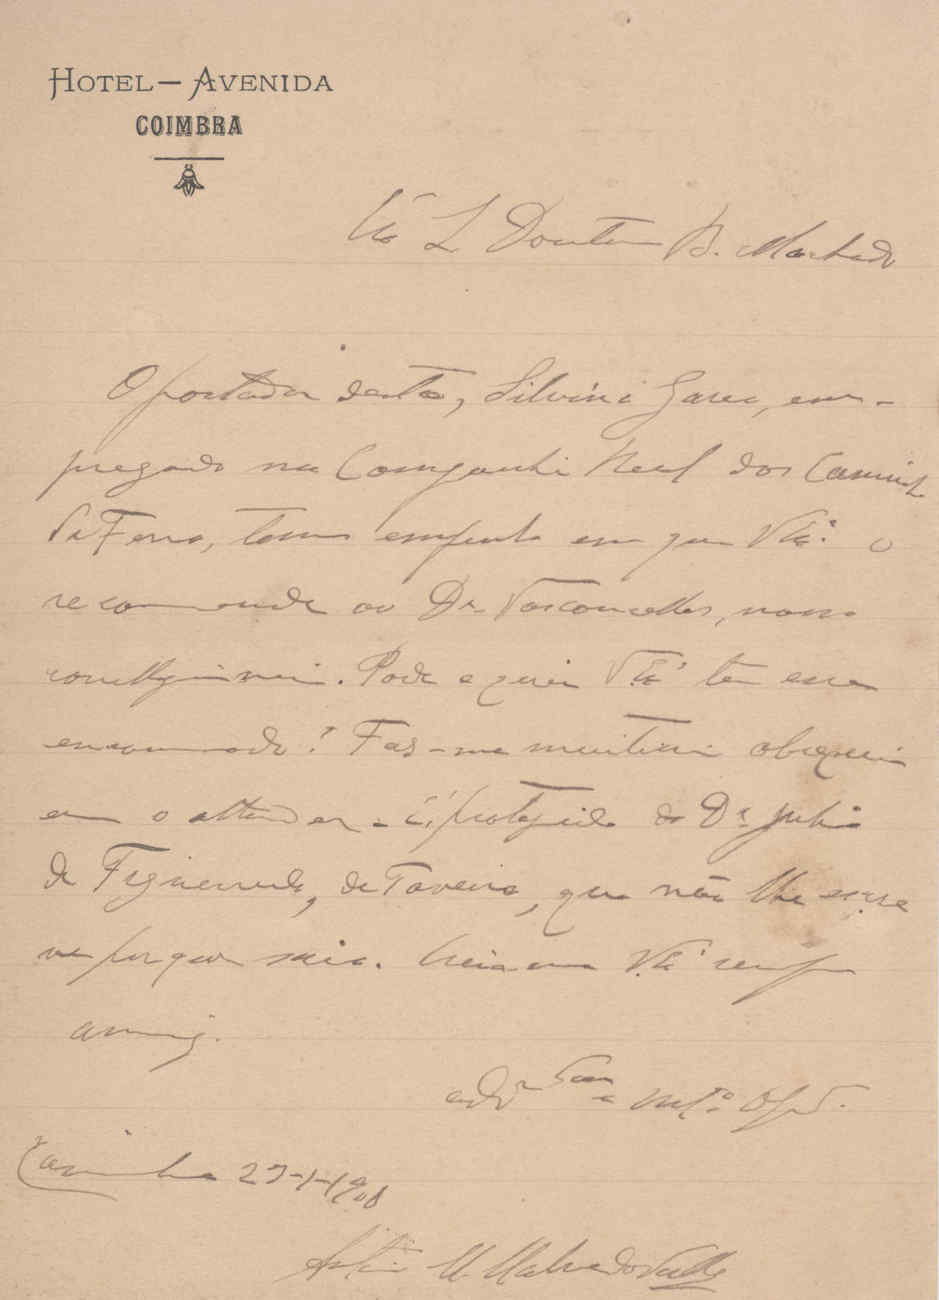 HOTEL — AVENIDA
COIMBRA
Doutor B. Machado
O portador desta, Silvino Gares, em-
pregado na Companhia Real dos Caminh
de Ferro, tem empenho em que V. Exª o
recommende ao Dr. Vasconcellos, nosso
correligionario. Pode e quer V. Exª ter esse
encommodo? Faz-me muitissimo obsequio
em o attender. É protegido do Dr. Julio
de Figueiredo, de Taveiro, que não lhe escre
ve porque
Creia-me V. Exª sempre
amigo
ador e mtº obgdº.
27-1-908